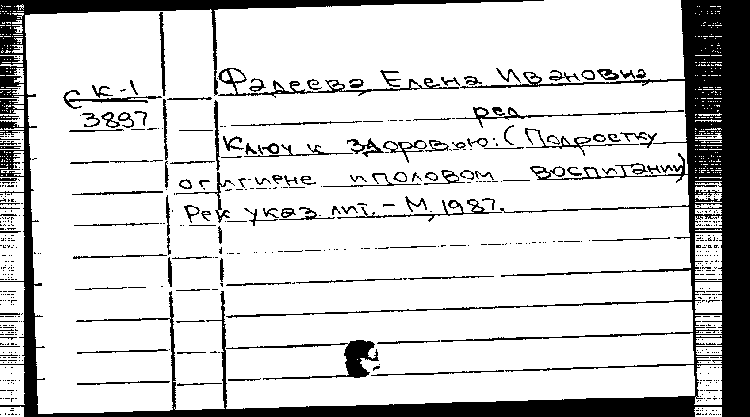 Фадеева Елена Ивановна
С К-1
3897
ред
Ключ к здоровью: (Подростку
о гигиене и половом воспитании)
Рек указ лит. - М, 1987.